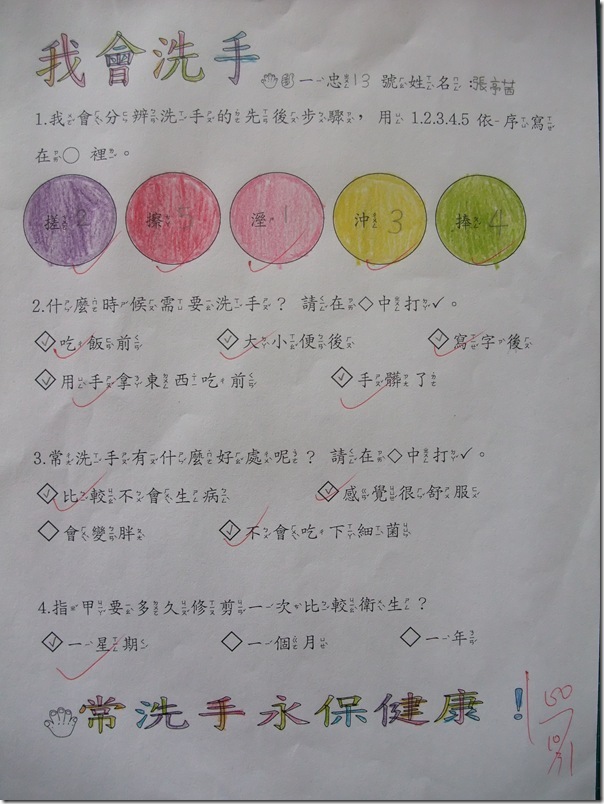 我會洗手
一忠13 號姓名:張
1.我會分辨洗手的先後步驟，用 1.2.3.4.5 依序寫
在○裡。
搓2 擦5 溼1 沖3 捧4
2.什麼時候需要洗手？ 請在◇中打✓。
吃飯前 大小便後 寫字後
用手拿東西吃前 手髒了
3.常洗手有什麼好處呢？ 請在◇中打✓。
比較不會生病 感覺很舒服
會變胖 不會吃下細菌
4.指甲要多久修剪一次比較衛生？
一星期 一個月 一年
常洗手永保健康！